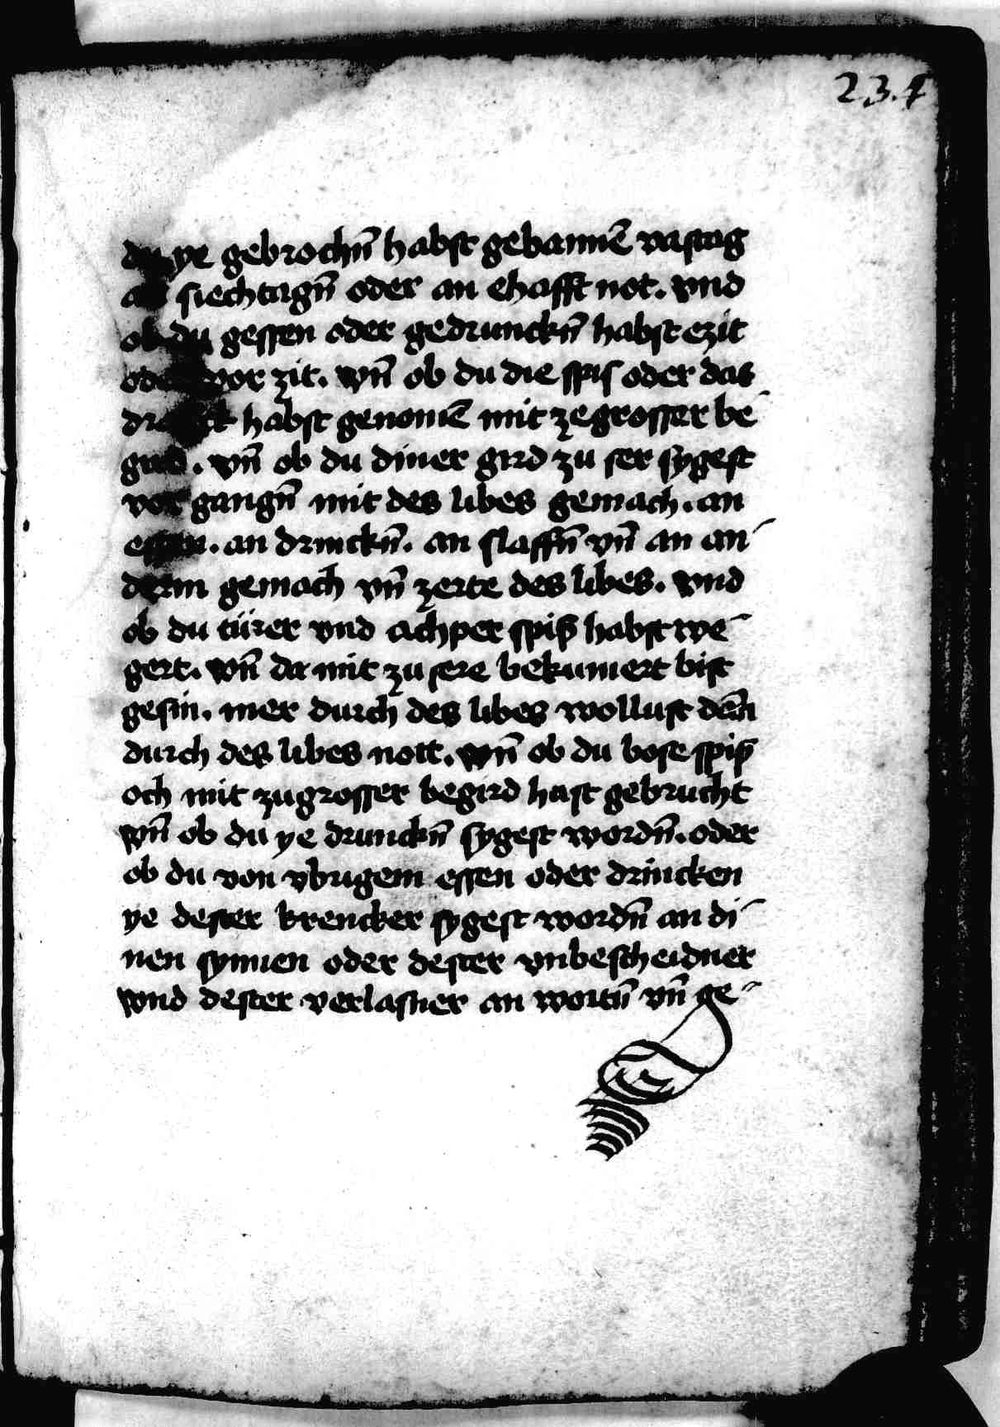 23.4
du ye gebrochn̄ habst gebannē vastag
an siechtagn̄ oder an ehafft not. vnd
ob du gessen oder gedrunckn̄ habst ezit
oder vor zit. vn̄ ob du die spis oder das
dranck habst genomē mit ze grosser be-
gird. vn̄ ob du diner gird zu ser sygest
vor gangn̄ mit des libes gemach. an
essen. an drinckn̄. an slaffn̄ vn̄ an an-
derm gemach vn̄ zerte des libes. vnd
ob du türer vnd achper spis habst we-
gert. vn̄ da mit zu sere bekumert bist
gesin. mer durch des libes wollust den̄
durch des libes nott. vn̄ ob du bose spis
och mit zu grosser begird hast gebrucht
vn̄ ob du ye drunckn̄ sygest wordn̄. oder
ob du von vbrigem essen oder drincken
ye dester krencker sygest wordn̄ an di-
nen synnen oder dester vnbescheidner
vnd dester verlasner an wortn̄ vn̄ ge-